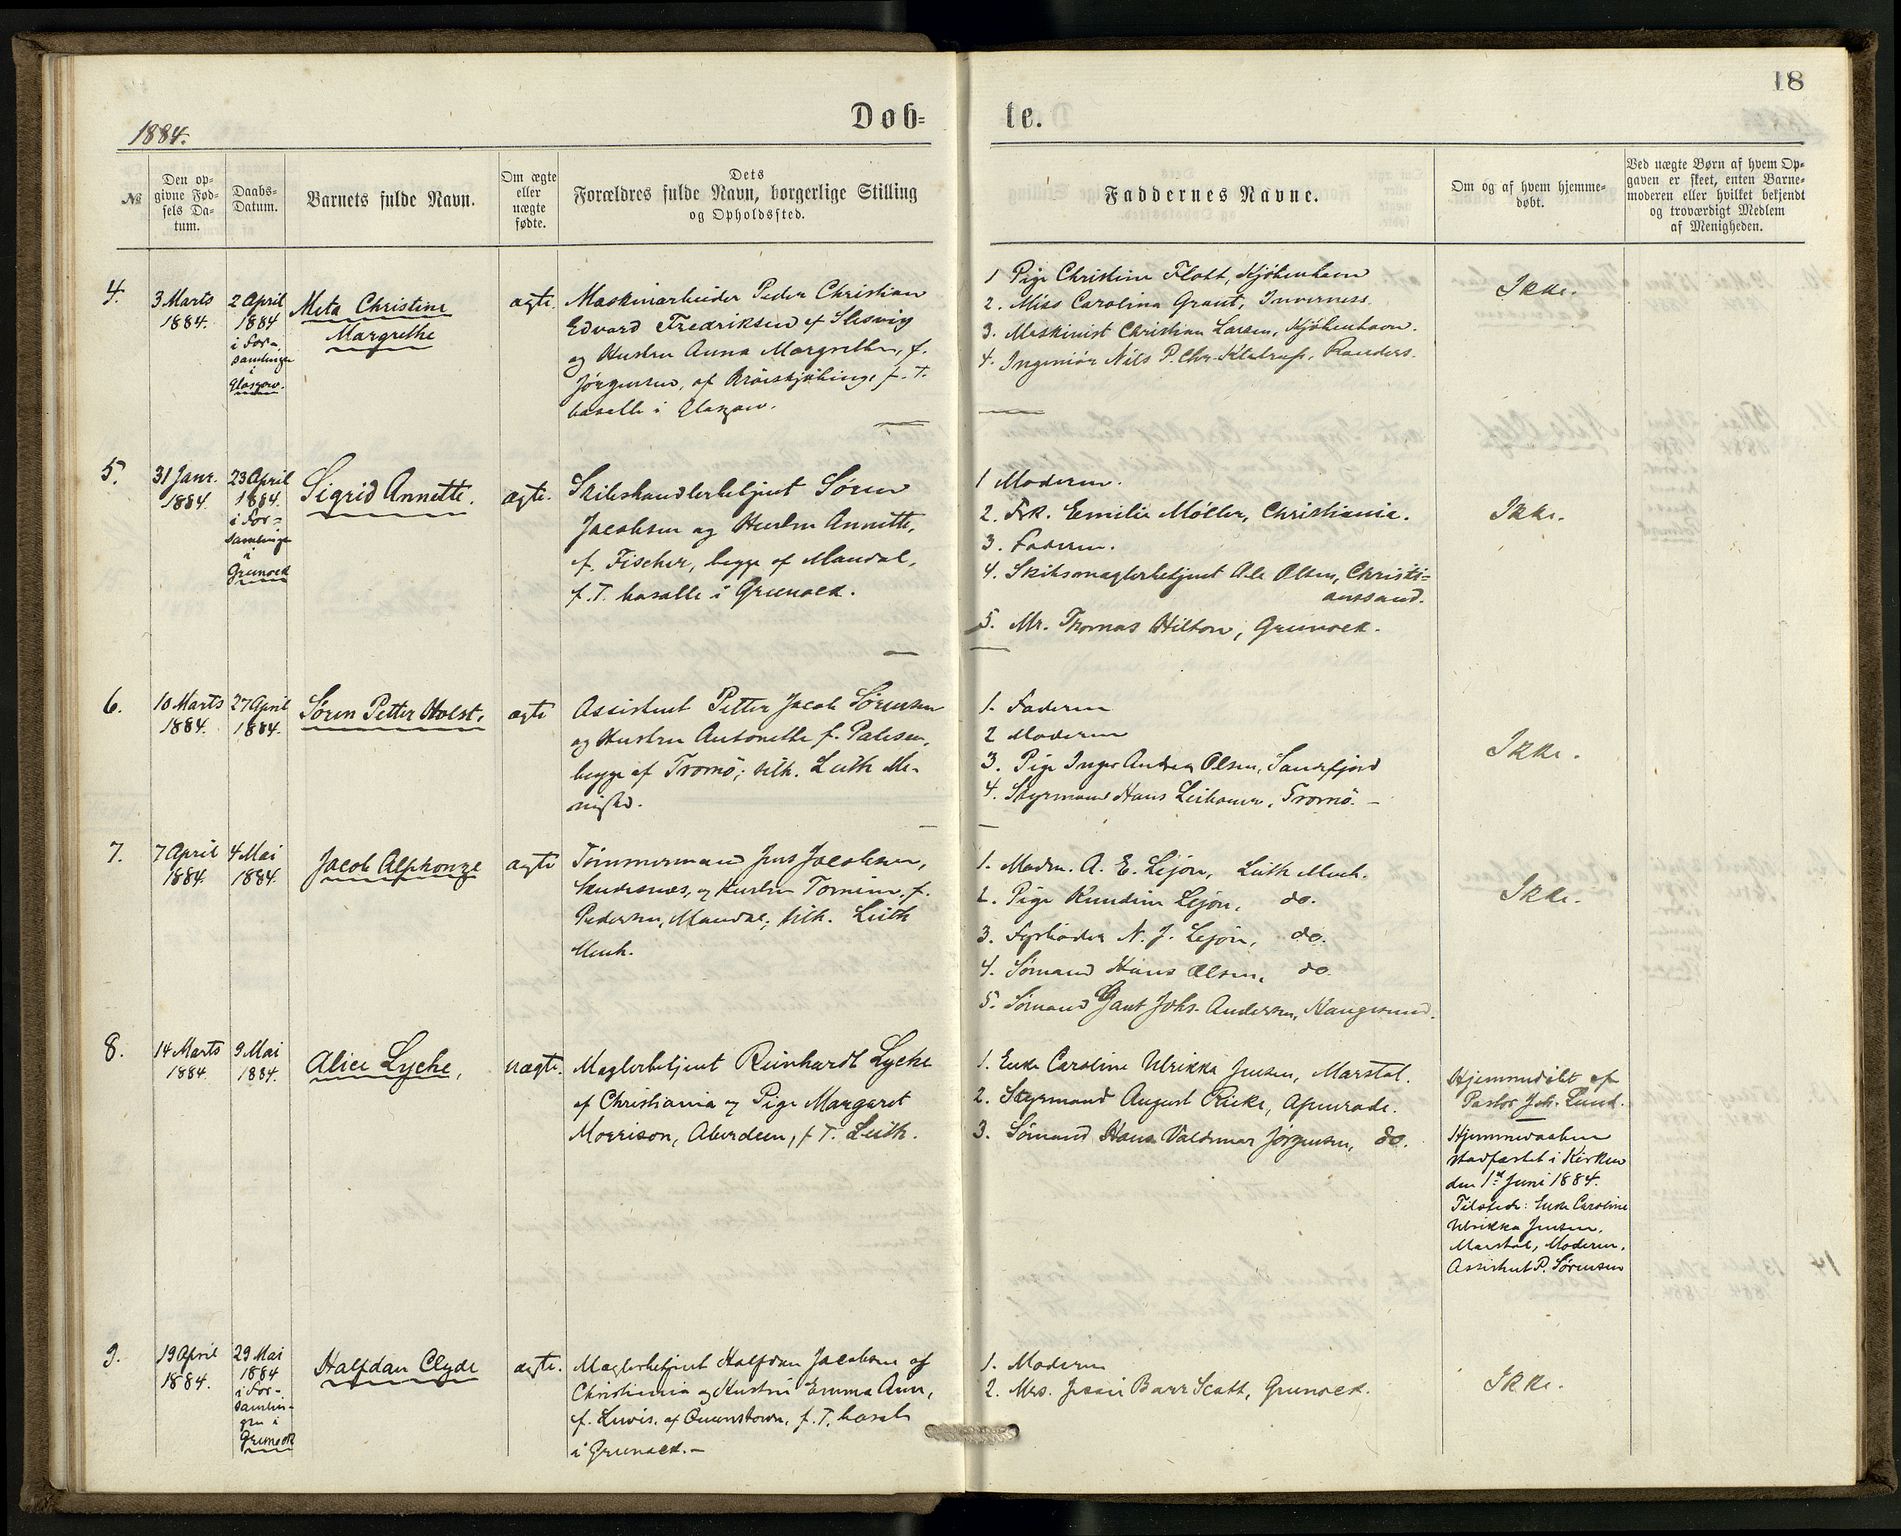 18
1884.
Døb-
te.
№
Den op-
givne Fød-
sels Da-
tum.
Daabs-
Datum.
Barnets fulde Navn.
Om ægte
eller
uægte
fødte.
Dets
Forældres fulde Navn, borgerlige Stilling
og Opholdssted.
Faddernes Navne.
Om og af hvem hjemme-
døbt.
Ved uægte Børn af hvem Op-
gaven er skeet, enten Barne-
moderen eller hvilket bekjendt
og troværdigt Medlem
af Menigheden.
4.
3 Marts
1884.
2 April
1884
i For-
samlingen
i
Glasgow.
Meta Christine
Margrethe
ægte.
Maskinarbeider Peder Christian
Edvard Fredriksen af Slesvig
og Hustru Anna Margrethe, f.
Jörgensen, af f. T.
bosatte i Glasgow.
1 Pige Christine Flatt, Kjöbenhavn
2. Miss Carolina Grant, Inverness.
3. Maskinist Christian Larsen, Kjöbenhavn.
4. Ingeniör Nils P. Chr. Randers.
Ikke.
5.
31 Janr.
1884.
23 April
1884.
i For-
samlingen
i
Greenock
Sigrid Annette.
ægte.
Skibshandlerbetjent Sören
Jacobsen og Hustru Annette,
f. Fischer, begge af Mandal,
f. T. bosatte i Greenock.
1 Moderen.
2. Frk. Emilie Möller, Christiania.
3. Faderen.
4. Skibsmæglerbetjent Ole Olsen, Christi-
anssand.
5. Mr. Thomas Hilton, Greenock.
Ikke.
6.
10 Marts
1884.
27 April
1884.
Sören Petter Holst.
ægte
Assistent Petter Jacob Sörensen
og Hustru Antonette f. Palesen,
begge af Tromö; tilh. Leith Me-
nighed.
1. Faderen
2 Moderen
3. Pige Inger Andrea Olsen, Sandefjord
4. Styrmand Hans Tromö. –
Ikke.
7.
7 April
1884.
4 Mai
1884.
Jacob Alphonze
ægte
Tömmermand Jens Jacobsen,
Skudesnæs, og Hustru Tomine, f.
Pedersen, Mandal; tilh. Leith
Menh.
1. Madm. A. E. Lejön, Leith Menh.
2. Pige Lejön, do.
3. Fyrböder N. J. Lejön, do.
4. Sömand Hans Olsen, do
5. Sömand Johs. Andersen, Haugesund.
Ikke.
8.
14 Marts
1884.
9 Mai
1884.
Alice Lycke,
uægte.
Mæglerbetjent Reinhardt Lycke
af Christiania og Pige Margaret
Morrison, Aberdeen, f. T. Leith.
1. Enke Caroline Ulrikka Jensen, Marstal.
2. Styrmand August Apenrade.
3. Sömand Hans Valdemar Jörgensen, do.
Hjemmedöbt af
Pastor Joh. Lund.
Hjemmedaaben
stadfæstet i Kirken
den 1st Juni 1884.
Tilstede: Enke Caroline
Ulrikka Jensen,
Marstal, Moderen,
Assistent P. Sörensen
9.
19 April
1884.
29 Mai
1884
i For-
samlin-
gen i
Greenock
Halfdan Clyde
ægte.
Mæglerbetjent Halfdan Jacobsen af
Christiania og Hustru Emma Ann,
f. Lewis, af Queenstown, f. T. bosatte
i Greenock. –
1. Moderen
2. Mrs. Jessie Barr Scott, Greenock.
Ikke.